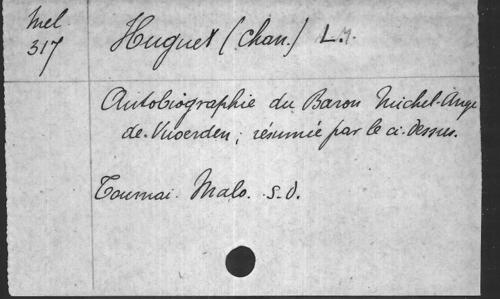 Mel.
317
Huguet (Chan.) L.M.
Autobiographie du Baron Michel-Ange
de Vuoerden; résumée par le ci-dessus.
Tournai. Malo. s.d.